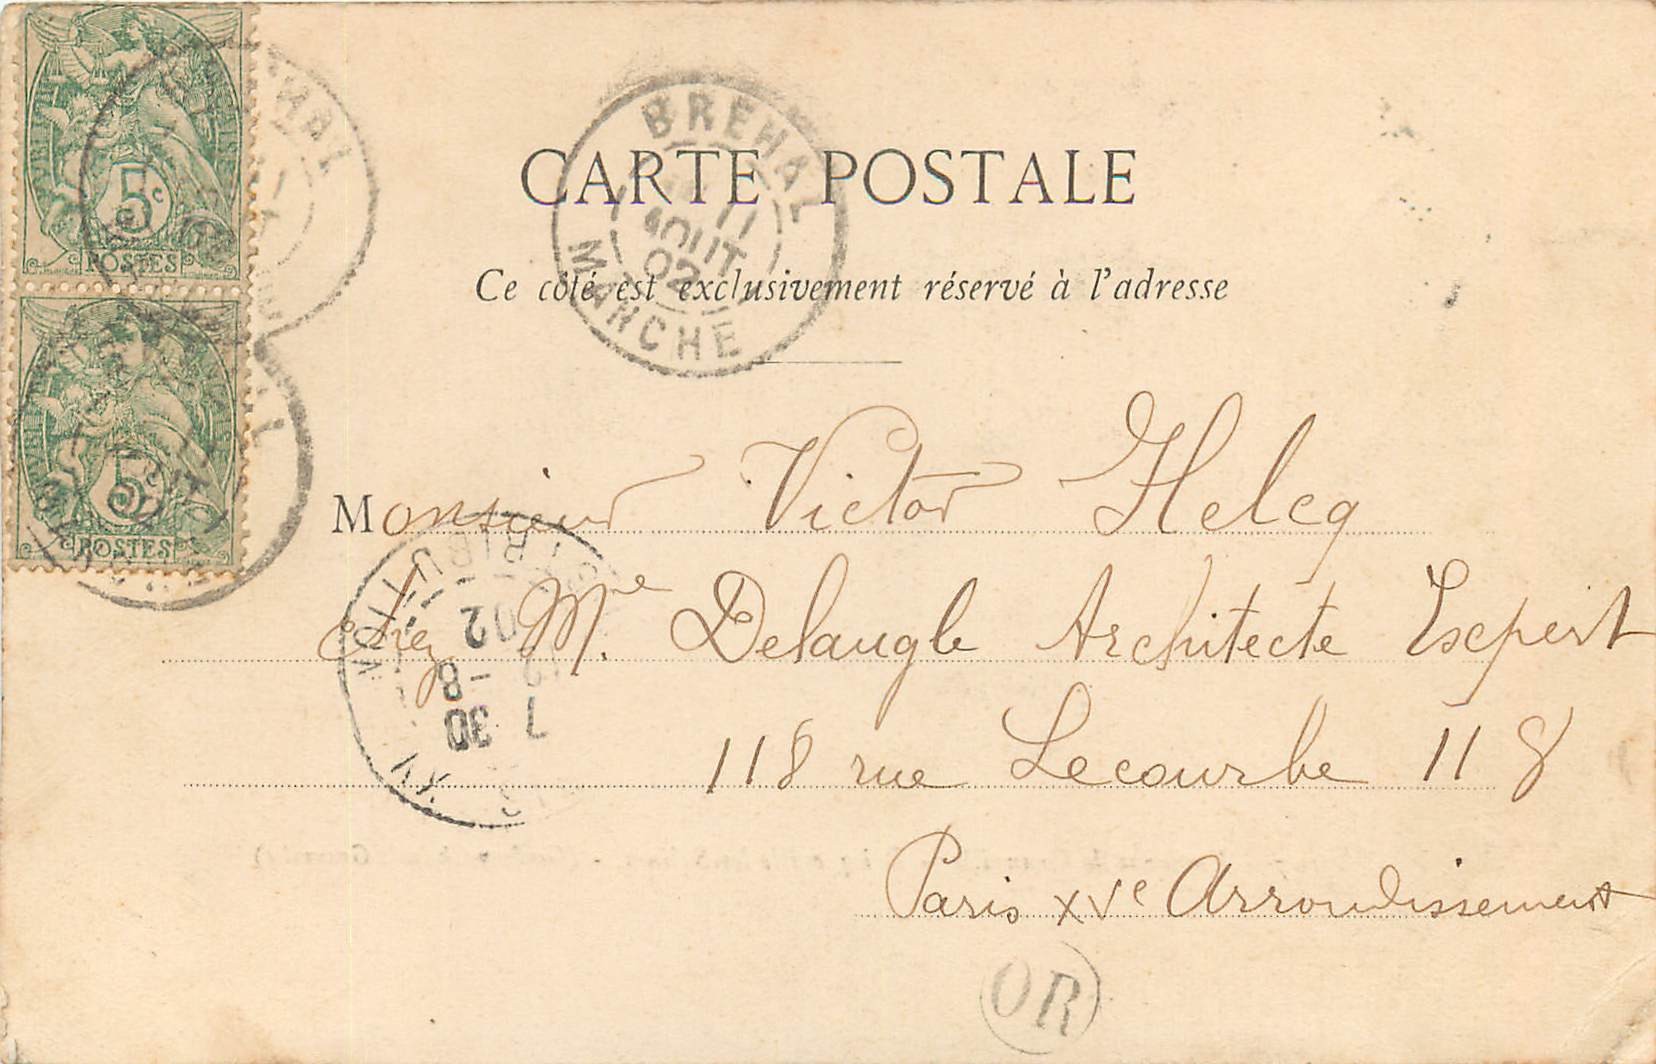 CARTE POSTALE
Ce côté est exclusivement réservé à l'adresse
BREHAL
11
AOUT
02
MANCHE
5c
POSTES
5c
POSTES
Monsieur Victor Helcq
chez Mr. Delaugle Architecte Expert
118 rue Lecourbe 118
Paris XVe Arrondissement
DISTRIBUTION
7 30
12 -8
02
XV
OR